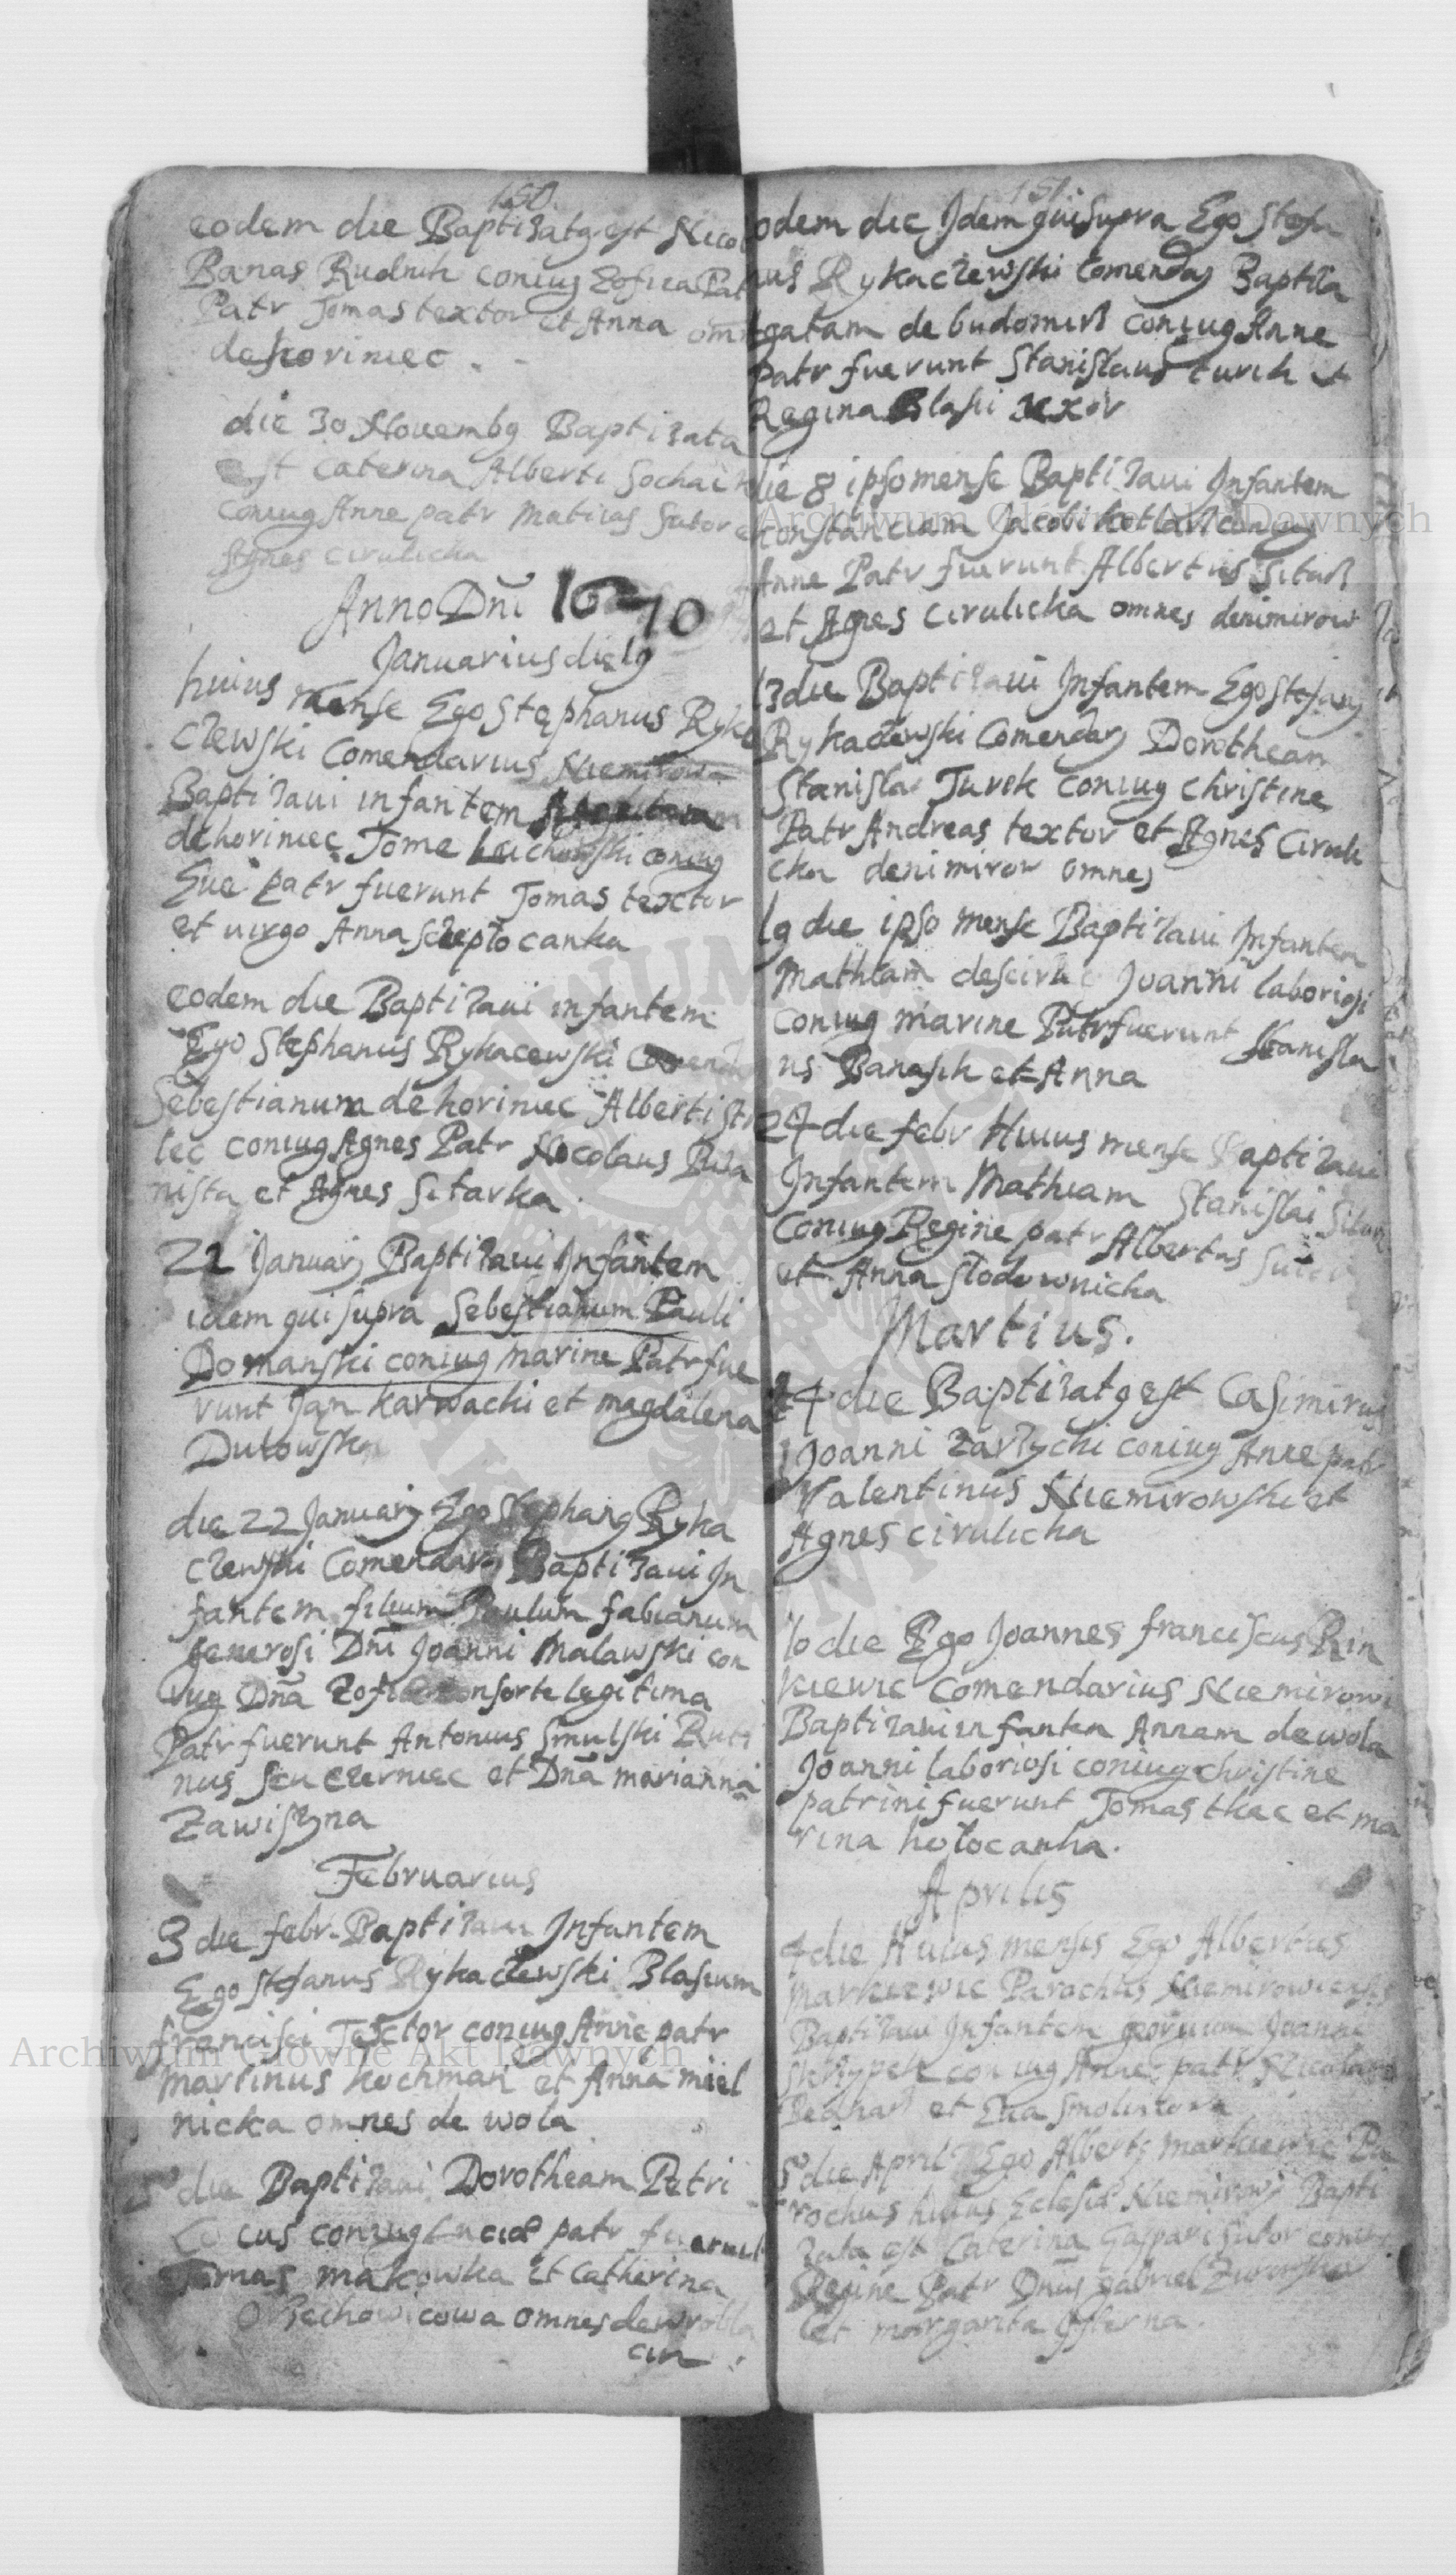 150.
eodem die Baptizatg est Nicol
Banas Rudnik coniug Zofiea Pat
Patr Tomas textor et Anna omn
de horiniec . -
die 30 Novembg Baptizata
est Caterina Alberti Sochaik
Coniug Anne patr Matias Sutor et
Agnes cirulicka
Anno Dni 1670
Januarius die 19
huius mense Ego Stephanus Ryka
czewski Comendarius Niemirow
Baptizaui infantem
de horiniec Tome coniug
Eue patr fuerunt Tomas textor
et uirgo Anna
eodem die Baptizaui infantem
Ego Stephanus Rykacewski
Sebestianum de horiniec Alberti Str
lec coniug Agnes Patr Nicolaus
nista et Agnes Sitarka
22 Januarj Baptizaui Infantem
idem qui supra Sebestianum Pauli
Domanski coniug Marine Patr fue
runt Jan karwachi et magdalena
Dutowska
die 22 Januarj Ego Stephang Ryka
czewski Comendarg Baptizaui In
fantem filium Paulum fabianum
generosi Dni Joanni Malawski con
iug Dna Zofia consorte legitima
Patr fuerunt Antonius Smulski
nus seu czerniec et Dna marianna
Zawiszyna
Februarius
3 die febr. Baptizaui Infantem
Ego Stefanus Rykaczewski Blasium
francisci Textor coniug Anne patr
Martinus kochman et Anna miel
nicka omnes de wola
5 die Baptizaui Dorotheam Petri
cus coniug Lucia patr fuerunt
Tomas makowka et Catherina
Orzechowicowa omnes de wrobla
cin .
151.
eodem die Idem qui supra Ego Stefa
nus Rykaczewski Comendag Baptiza
gatam de budomirz coniug Anne
patr fuerunt Stanislaus turek et
Regina Blasii uxor
die 8 ipso mense Baptizaui Infantem
constanciam Jacobi kotlarz coniug
Anne Patr fuerunt Albertus Sitarz
et Agnes Cirulicka omnes denimirow
13 die Baptizaui Infantem Ego Stefang
Rykaczewski Comendarg Dorotheam
Stanislai Turek coniug Christine
Patr Andreas textor et Agnes Ciruli
cka denimirow omnes
19 die ipso mense Baptizaui Infantem
Mathiam Joanni laboriosi
Coniug marine Patr fuerunt Stanisla
us Banasik et Anna
24 die febr Huius mense Baptizaui
Infantem Mathiam Stanislai Sitarz
Coniug Regine patr Albertus
et Anna slodownicka
Martius.
4 die Baptizatg est Casimirus
Joanni Zarzychi coniug Anne patr
Valentinus Niemirowski et
Agnes cirulicka
10 die Ego Joannes franciscus Rin
kiewic Comendarius Niemirowi
Baptizaui infantem Annam de wola
Joanni laboriosi coniug christine
patrini fuerunt Tomas tkac et ma
rina holocanka.
Aprilis
4 die Huius mensis Ego Albertus
Markiewic Parochus Niemirowiensis
Baptizaui Infantem Joanni
skrzypek coniug Anne patr Nicolaus
et Eua
5 die April Ego Albertg Markiewic Pa
rochus huius Eclesie Niemirowi Bapti
zata est Caterina Gaspari sutor coniug
Regine Patr Dnus Gabriel
et margarita
Archiwum Główne Akt Dawnych
Archiwum Główne Akt Dawnych